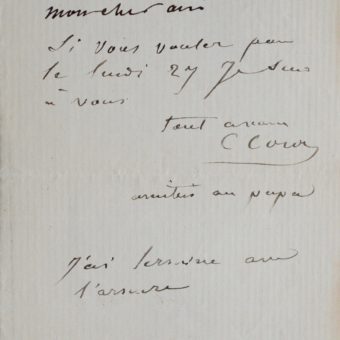 mon cher ami
Si vous voulez pour
le lundi 27 je suis
à vous
tout
C Corot
amitiés au papa
J'ai terminé